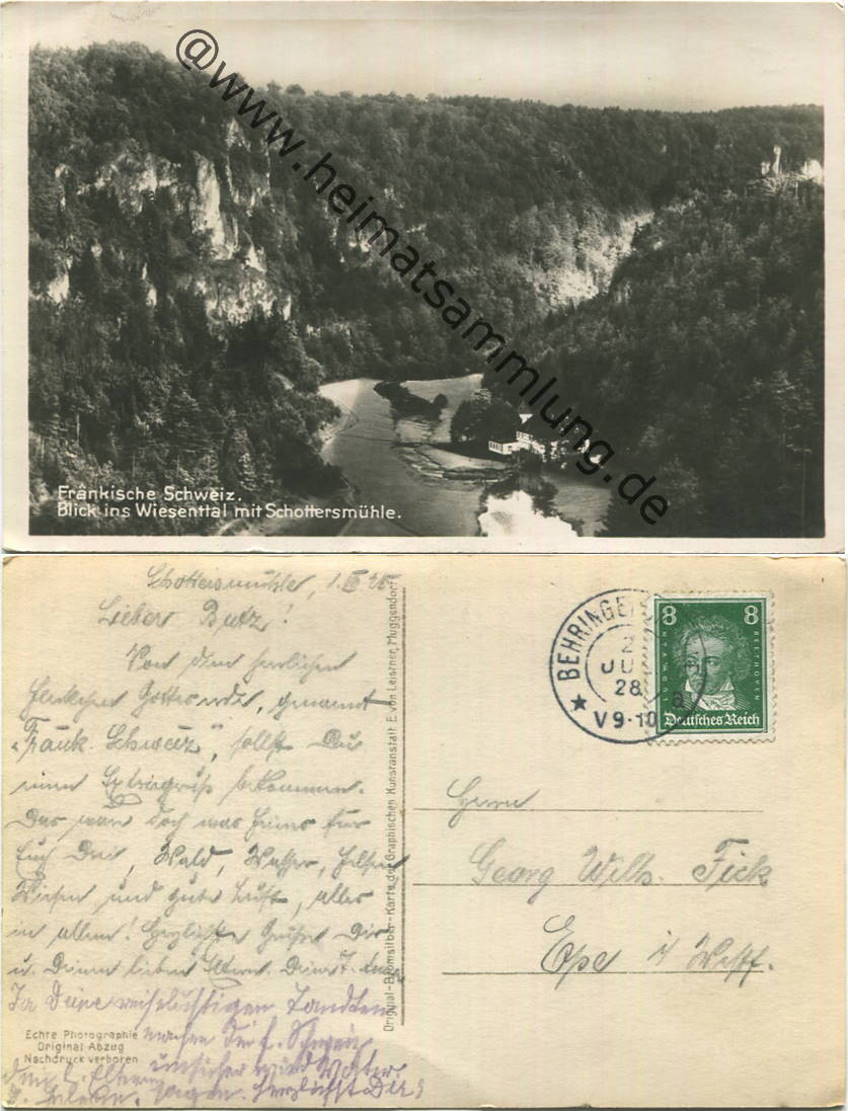 @www.heimatsammlung.de
Fränkische Schweiz.
Blick ins Wiesenttal mit Schottersmühle.
Schottersmühle, 1.
Lieber Butz!
Von dem herrlichen
Fleckchen Gottes erde, genannt
"Fränk. Schweiz", sollst Du
einen Extragruß bekommen.
Das wäre doch was feines für
Euch Drei, Wald, Wasser, Felsen
Wiesen und gute Luft, alles
in allem! Herzliche Grüße Dir
u. Deinen lieben Eltern.
In Deine
machen der f. Schweiz
Echte Photographie
Original Abzug
Nachdruck verboten
Original-Bromsilber-Karte der Graphischen Kunstanstalt E. von Leistner, Muggendorf
BEHRINGE
JU
28.
V 9-10
8 8
LUDW. VAN BEETHOVEN
Deutsches Reich
Herrn
Georg Wilh. Fick
Epe i/ Westf.